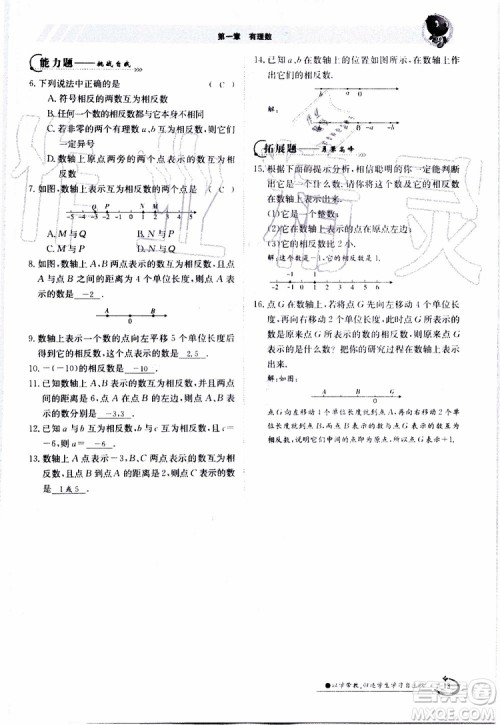 第一章　有理数
能力题——挑战自我
6. 下列说法中正确的是　（ C ）
A. 符号相反的两数互为相反数
B. 任何一个数的相反数都与这个数本身不同
C. 若非零的两个有理数 a,b 互为相反数,则 a,b 一定异号
D. 数轴上原点两旁的两个点表示的数互为相反数
7. 如图,数轴上表示的数互为相反数的两个点是　（ C ）
Q　P
A. M 与 Q　B. N 与 P
C. M 与 P　D. N 与 Q
8. 如图,数轴上 A,B 两点表示的数互为相反数,且
点 A 与点 B 之间的距离为 4 个单位长度,则点 A
表示的数是 －2 .
0
9. 数轴上表示一个数的点向左平移 5 个单位长度后
得到它的相反数,这个数是 2.5 .
10. －(－10)的相反数是 －10 .
11. 已知数轴上 A,B 表示的数互为相反数,并且两点间的距离
是 6,点 A 在点 B 的左边,则点 A,B 表示的数分别是 －3,3 .
12. 已知 a 与 b 互为相反数,b 与 c 互为相反数,且 c=
－6,则 a= －6 .
13. 已知数轴上点 A 表示－3,B,C 两点表示的数互为相
反数,且点 B 到点 A 的距离是 2,则点 C 表示的数应
是 1或5 .
14. 已知 a,b 在数轴上的位置如图所示,在数轴上作
出它们的相反数.
解:
拓展题——勇攀高峰
15. 根据下面的提示分析,相信聪明的你一定能猜对
这个数是什么,再把这个数以及它的相反数在数
轴上表示出来.
(1)它是一个整数;
(2)它在数轴上表示的点在原点左边;
(3)它的相反数比 2 小.
解:这个数是－1,它的相反数是 1.
16. 点 G 在数轴上,若将点 G 先向右移动 4 个单位长
度,再向左移动 2 个单位长度到原点,则点 G 表
示的数是什么? 把你的研究过程在数轴上表示
出来.
解:如图.
G　0
点 G 先向右移动 4 个单位长度,再向左移动 2 个单位长度到
原点,相当于点 G 向右移动 2 个单位长度到原点,所以点 G
表示的数是－2.